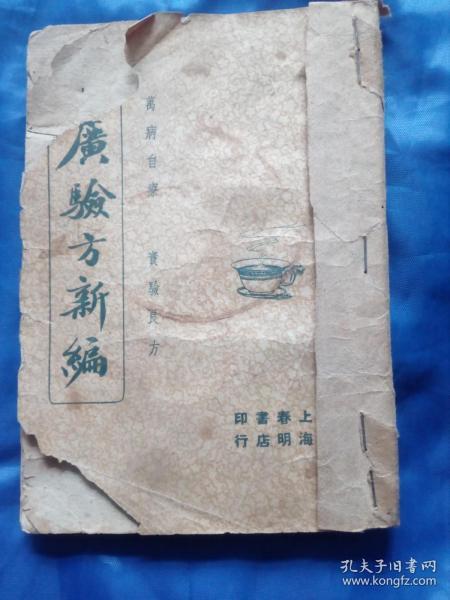 萬病自療 實驗良方
廣驗方新編
上海春明書店印行
孔夫子旧书网
www.kongfz.com